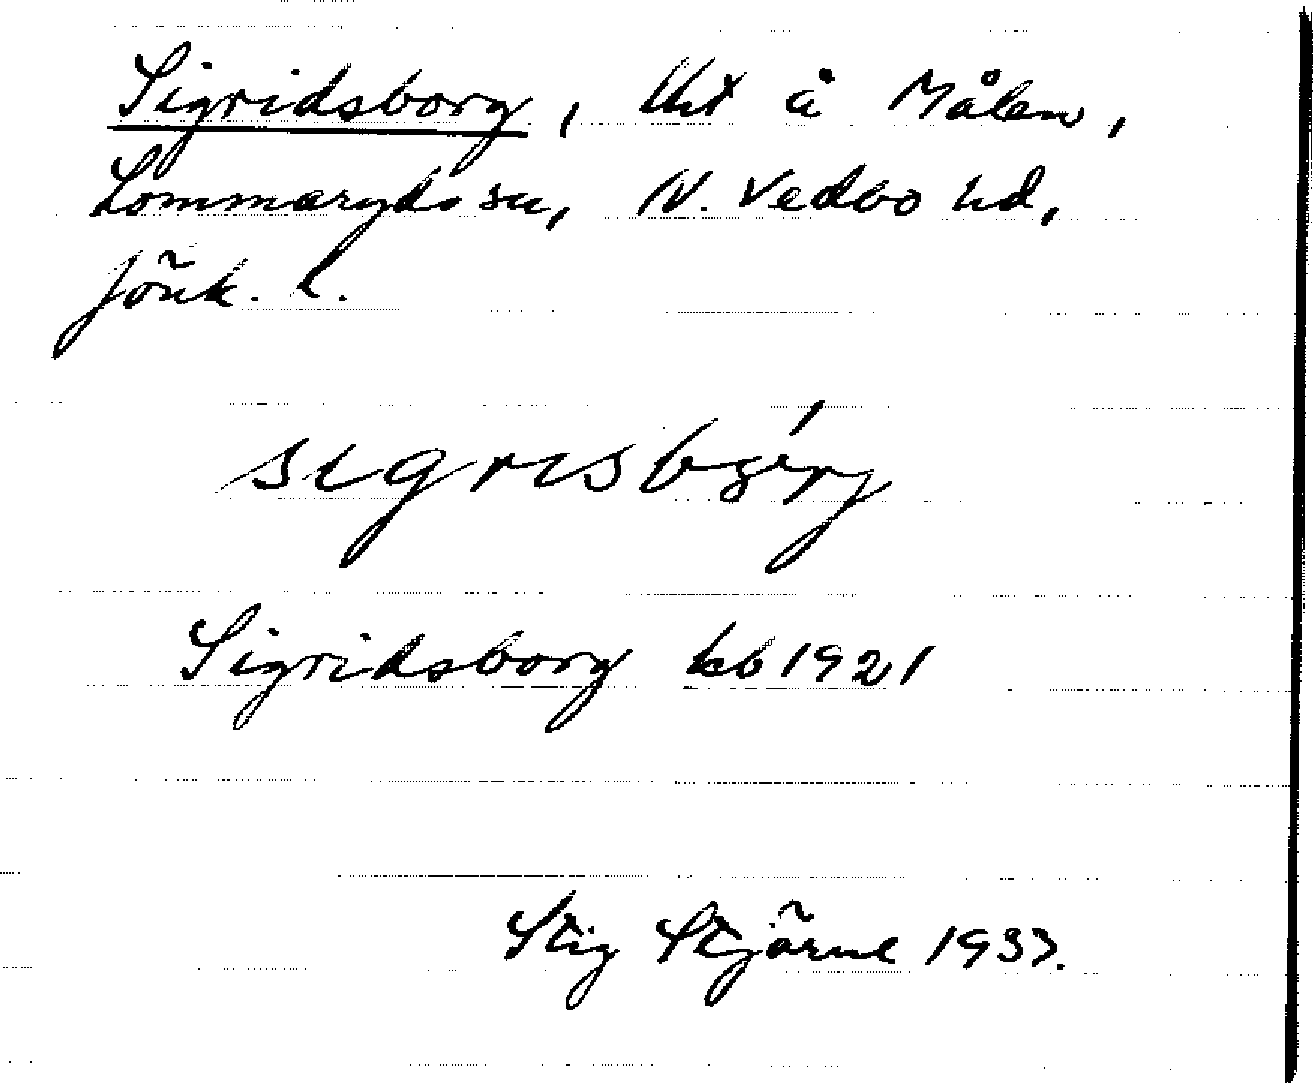 Sigridsborg, lht å Målen,
Lommaryds sn, N. Vedbo hd,
Jönk. l.
Sigridsborg kb 1921
Stig Stjärne 1937.